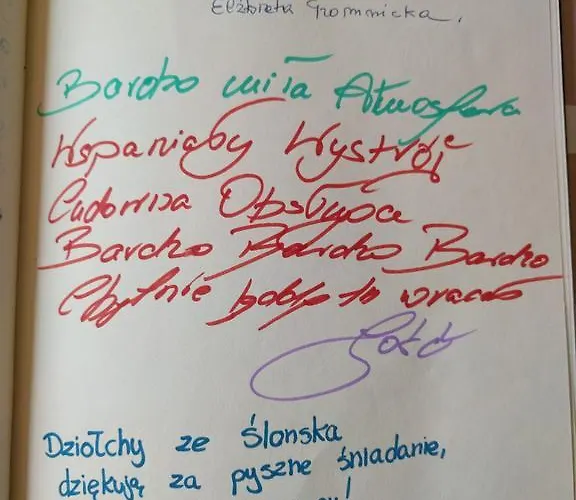 Elżbieta Gromnicka.
Bardzo miła Atmosfera
Wspaniały Wystrój
Cudowna Obsługa
Bardzo Bardzo Bardzo
Chętnie będę tu wracać
Gość
Dziołchy ze ślonska
dziękują za pyszne śniadanie,